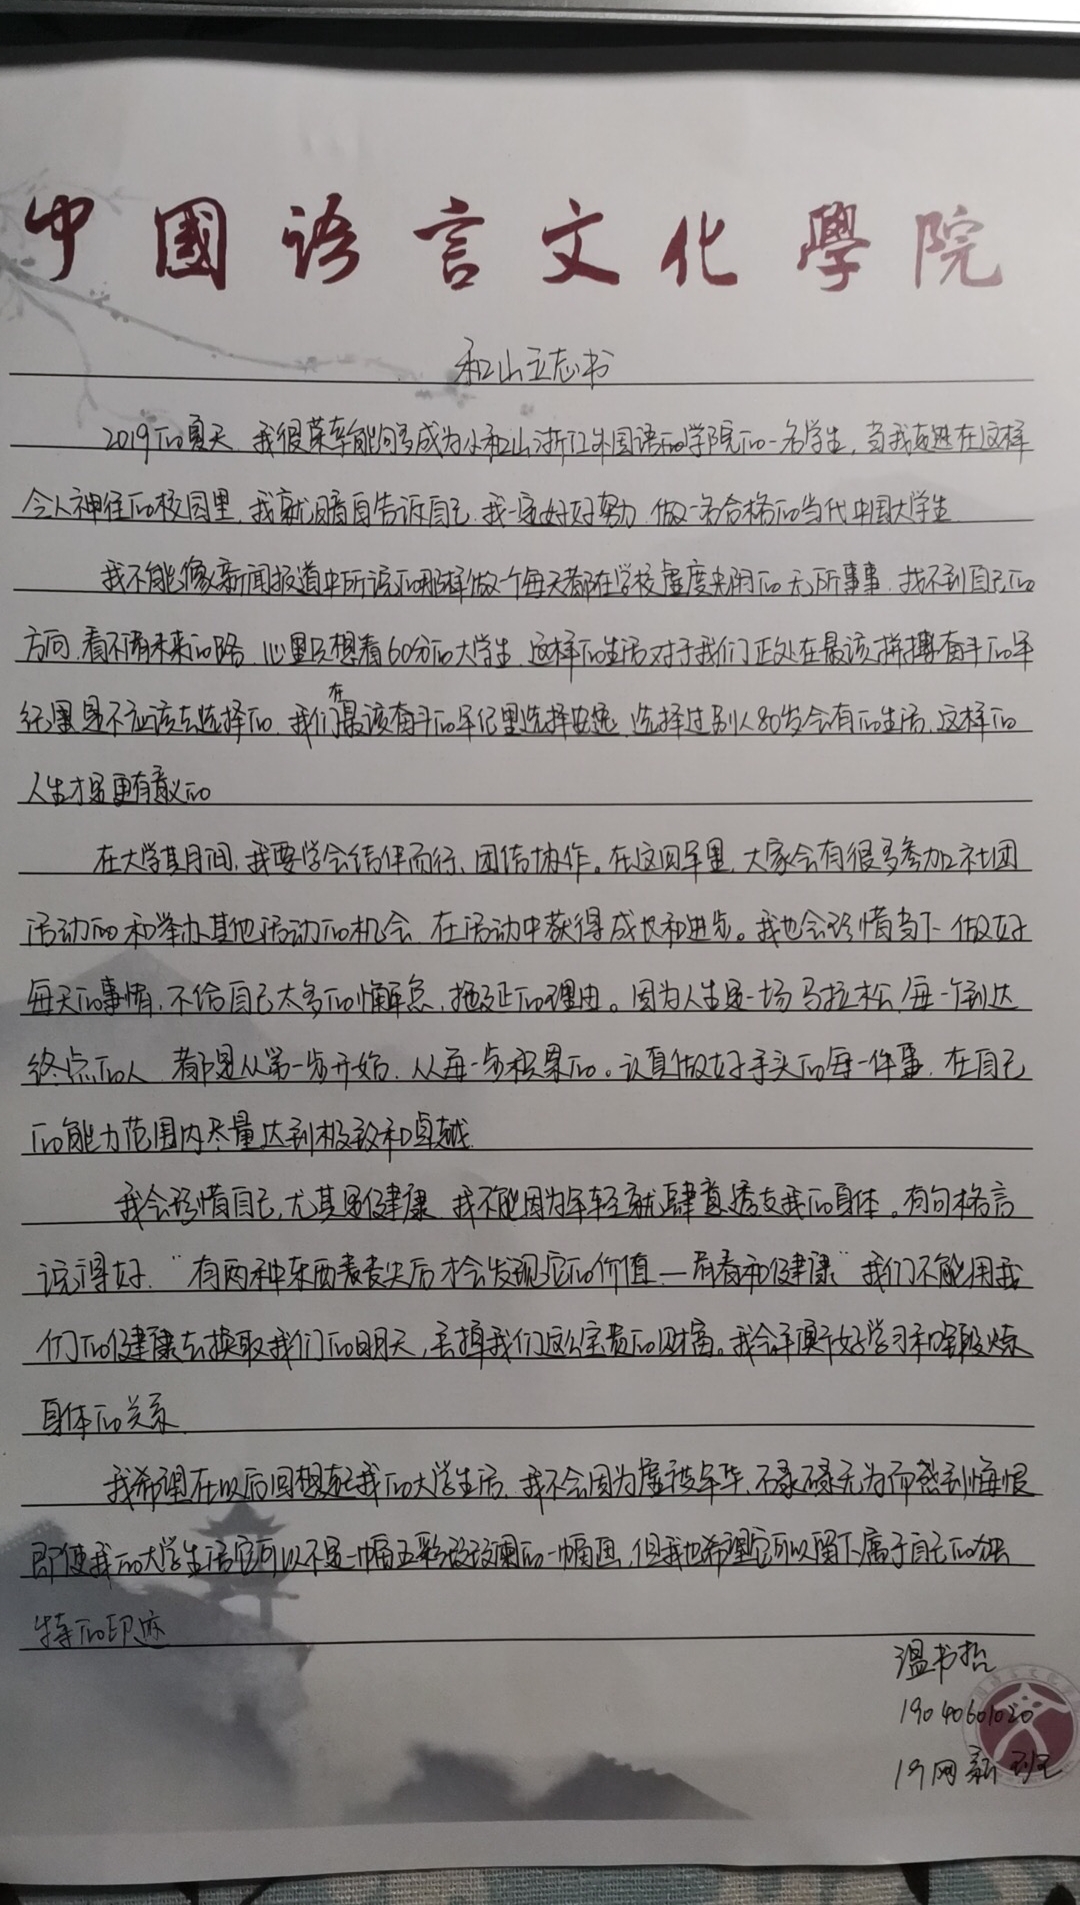 中國语言文化學院
和山立志书
2019的夏天，我很荣幸能够成为小和山浙江外国语的学院的一名学生，当我走进在这样
令人神往的校园里，我就暗自告诉自己，我一定好好努力，做一名合格的当代中国大学生
我不能像新闻报道中所说的那样做一个每天都在学校虚度光阴的无所事事，找不到自己的
方向，看不清未来的路，心里只想着60分的大学生，这样的生活对于我们正处在最该拼搏奋斗的年
纪里是不应该去选择的，我们在最该奋斗的年纪里选择安逸，选择过别人80岁会有的生活，这样的
人生才是更有意义的
在大学其月间，我要学会结伴而行、团结协作。在这四年里，大家会有很多参加社团
活动的和举办其他活动的机会，在活动中获得成长和进步。我也会珍惜当下，做好
每天的事情，不给自己太多的懈怠，拖延的理由。因为人生是一场马拉松，每一个到达
终点的人，都是从第一步开始，从每一步积累的。认真做好手头的每一件事，在自己
的能力范围内尽量达到极致和卓越
我会珍惜自己，尤其是健康，我不能因为年轻就肆意透支我的身体。有句格言
说得好，“有两种东西丧失后才会发现它的价值——青春和健康”我们不能用我
们的健康去换取我们的明天，丢掉我们这么宝贵的财富。我会平衡好学习和锻炼
身体的关系
我希望在以后回想起我的大学生活，我不会因为虚度年华，碌碌无为而感到悔恨
即使我的大学生活它可以不是一幅五彩斑斓的一幅画，但我也希望它可以留下属于自己的独
特的印迹
温书抬
19040601020
19网新班